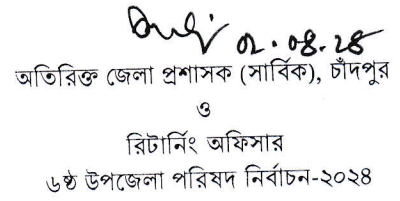 ০২.০৪.২৪
অতিরিক্ত জেলা প্রশাসক (সার্বিক), চাঁদপুর
ও
রিটার্নিং অফিসার
৬ষ্ঠ উপজেলা পরিষদ নির্বাচন-২০২৪